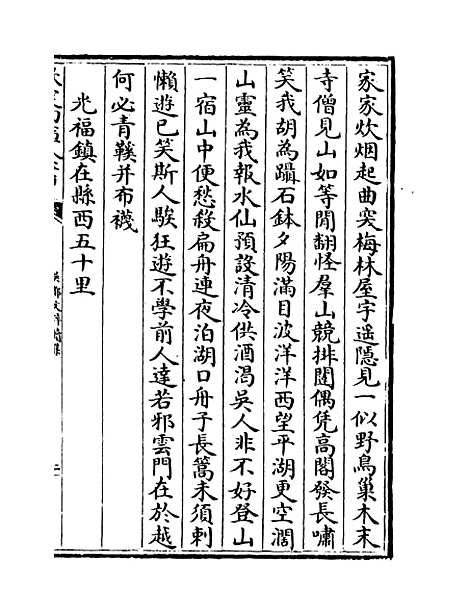 家家炊烟起曲突梅林屋宇遥隠見一似野鳥巢木末
寺僧見山如等閒翻怪羣山競排闥偶凭高閣發長嘯
笑我胡為躡石鉢夕陽滿目波洋洋西望平湖更空濶
山靈為我報水仙預設清冷供酒渴吳人非不好登山
一宿山中便愁殺扁舟連夜泊湖口舟子長篙未須刺
懶遊已笑斯人騃狂遊不學前人達若邪雲門在於越
何必青鞵并布襪
光福鎮在縣西五十里